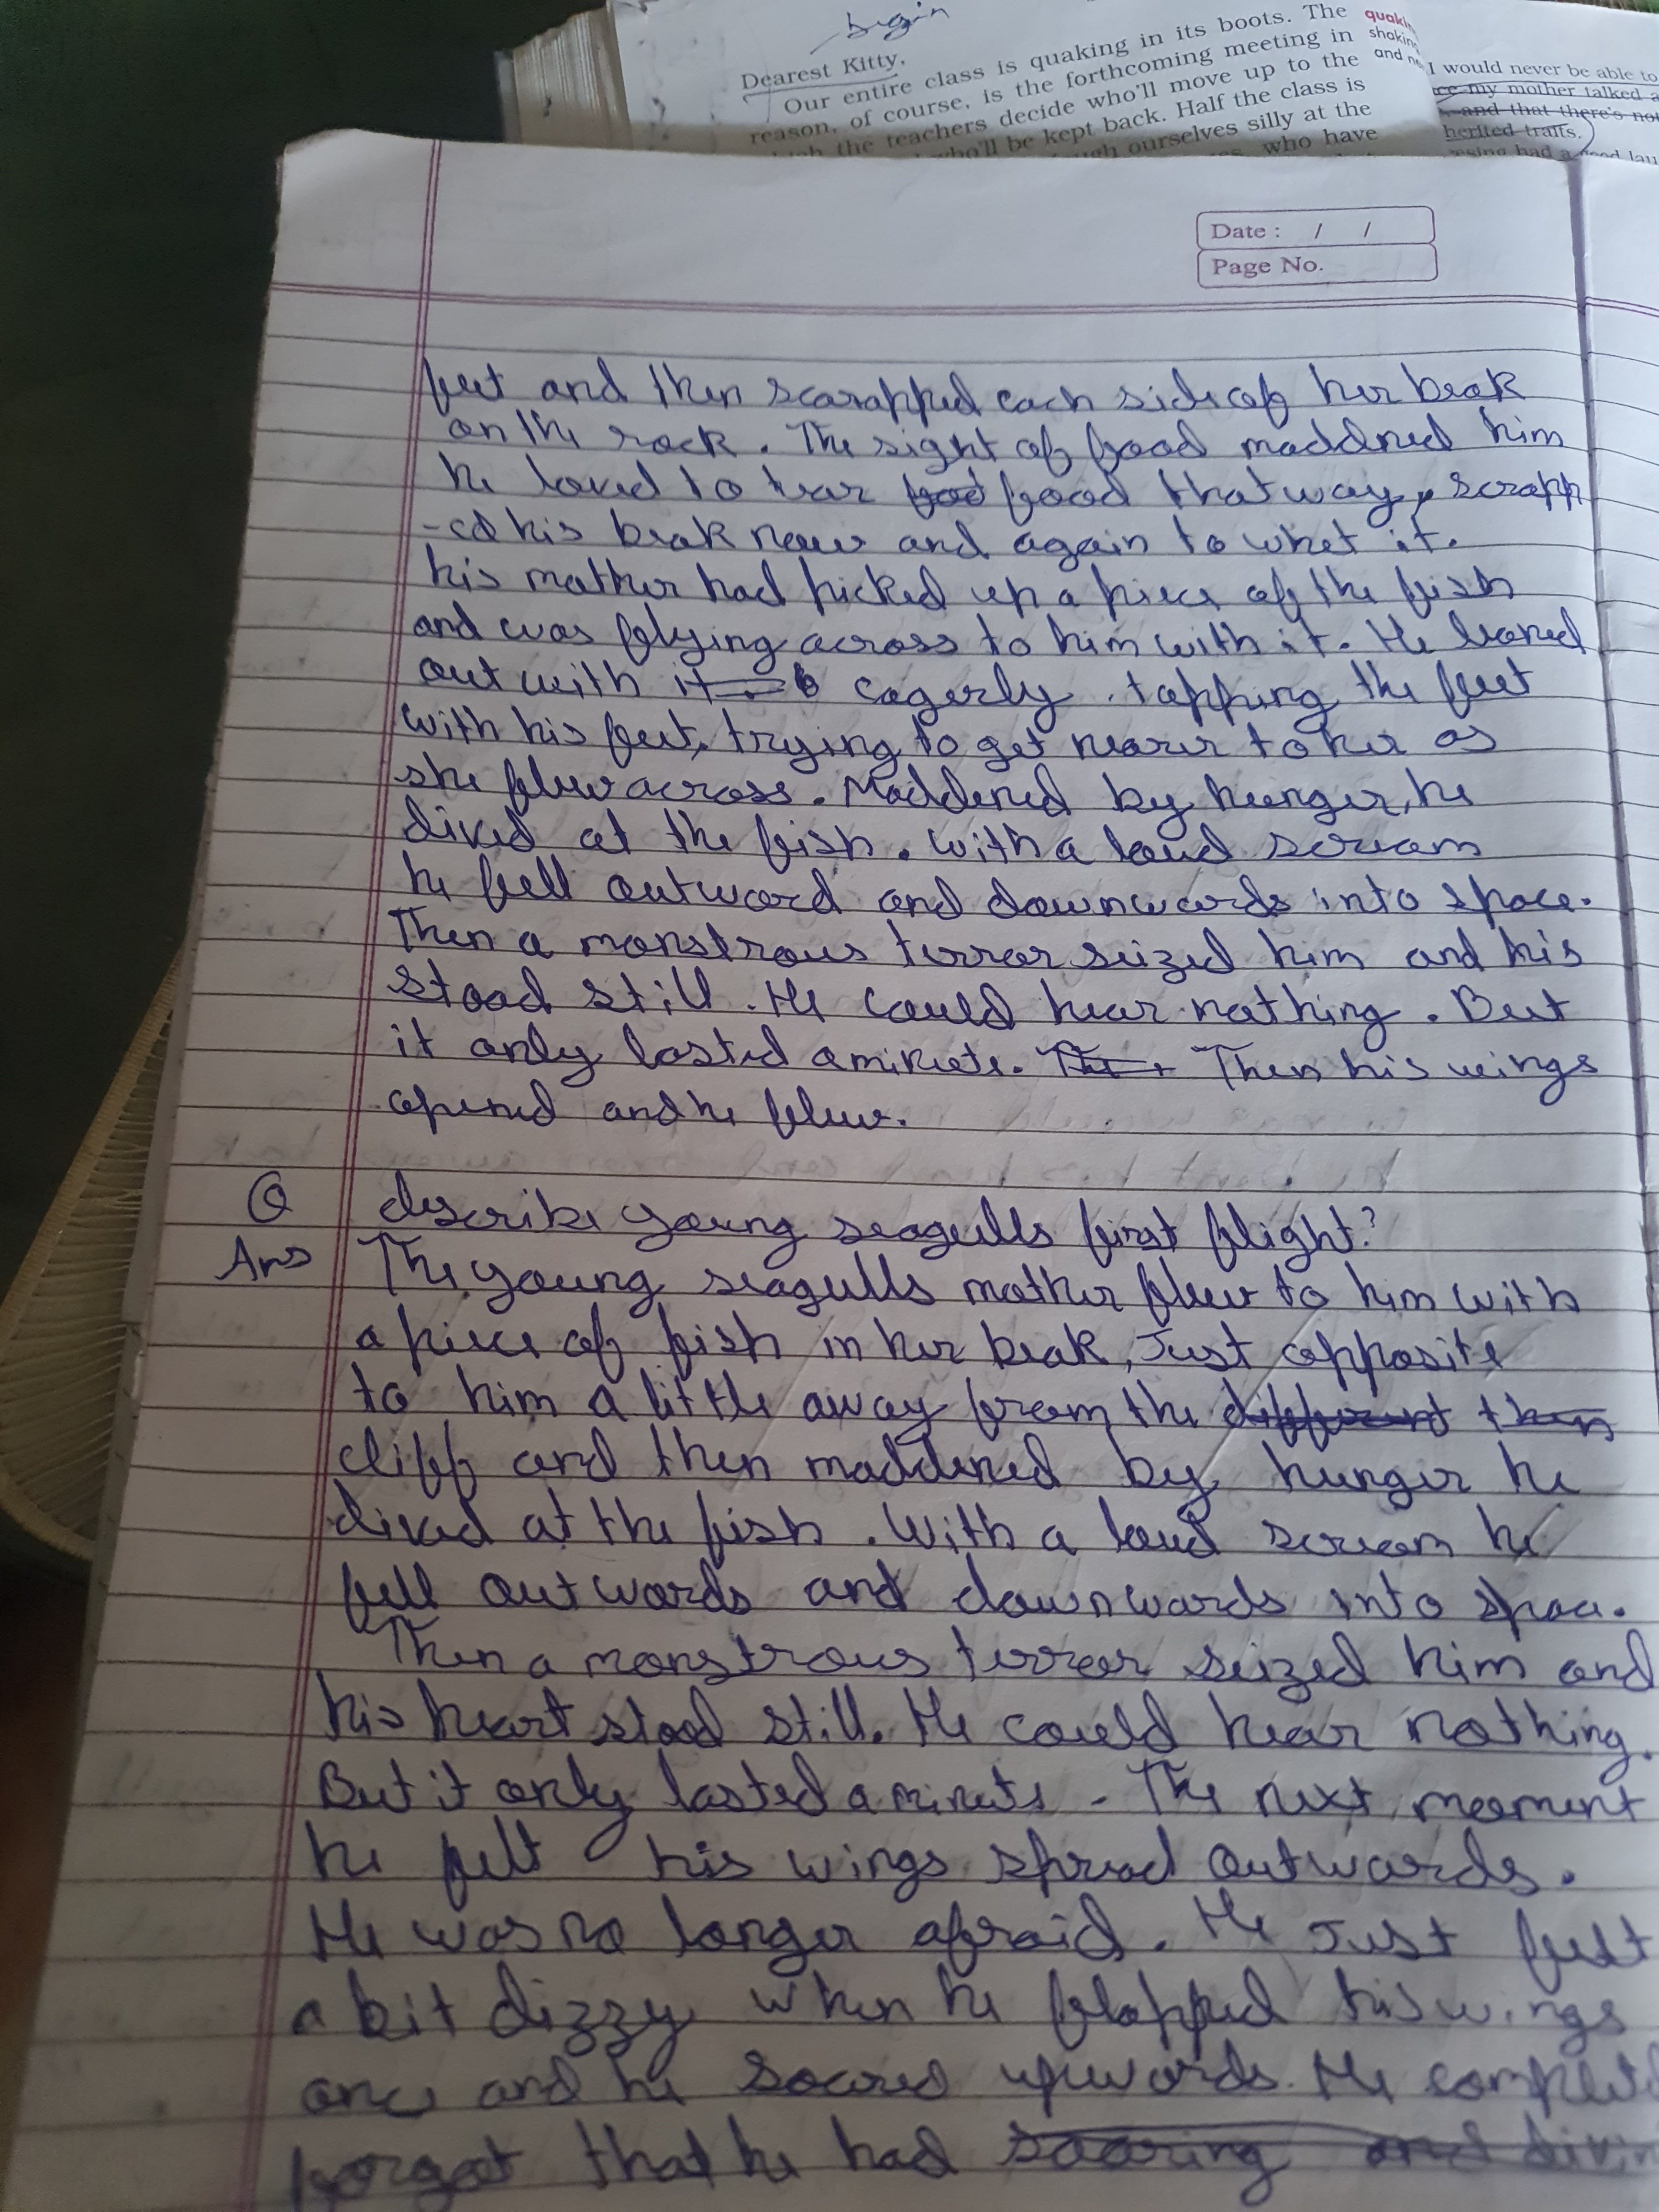 begin
Dearest Kitty,
Our entire class is quaking in its boots. The
reason, of course, is the forthcoming meeting in
the teachers decide who'll move up to the
who'll be kept back. Half the class is
ourselves silly at the
who have
quaki
shakin
and n
I would never be able to
ce my mother talked a
and that there's not
herited traits.
esing had a good lau
Date : / /
Page No.
feet and then scarapped each side of her beak
on the rock. The sight of food maddned him
he loved to tear food that way, scrapp
-ed his beak now and again to whet it.
his mother had picked up a piece of the fish
and was flying across to him with it. He leaned
out with it eagerly. tapping the feet
with his feet, trying to get nearer to her as
she flew across. Maddened by hunger, he
dived at the fish. with a loud scream
he fell outword and downwards into space.
Then a monstrous terror seized him and his
stood still. He could hear nothing. But
it only lasted a minute. The Then his wings
opened and he flew.
Q describe young seagulls first flight?
Ans The young seagulls mother flew to him with
a piece of fish in her beak, Just opposite
to him a little away from the different then
cliff and then maddened by hunger he
dived at the fish. With a loud scream he
fell outwords and downwards into space.
Then a monstrous terror seized him and
his heart stood still. He could hear nothing.
But it only lasted a minute - The next moment
he felt his wings spread outwards.
He was no longer afraid. He Just felt
a bit dizzy when he flapped his wings
once and he soared upwords. He complet
forgot that he had soaring and divin